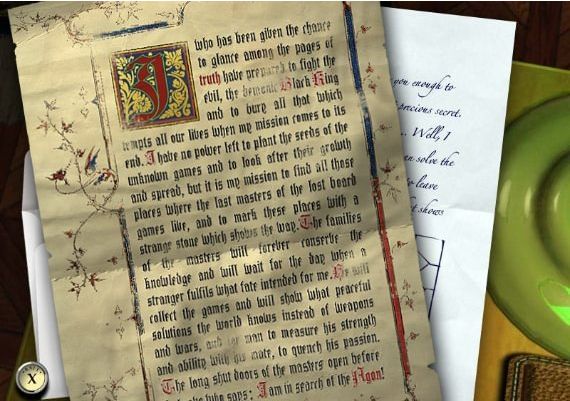 I who has been given the chance
to glance among the pages of
truth have prepared to fight the
evil, the demonic Black King
and to bury all that which
tempts all our lives when my mission comes to its
end. I have no power left to plant the seeds of the
unknown games and to look after their growth
and spread, but it is my mission to find all those
places where the last masters of the lost board
games live, and to mark these places with a
strange stone which shows the way. The families
of the masters will forever conserve the
knowledge and will wait for the day when a
stranger fulfils what fate intended for me. He will
collect the games and will show what peaceful
solutions the world knows instead of weapons
and wars, and for man to measure his strength
and ability with his mate, to quench his passion.
The long shut doors of the masters open before
who says: I am in search of the Agon!
you enough to
precious secret.
... Well, I
solve the
leave
shows
X